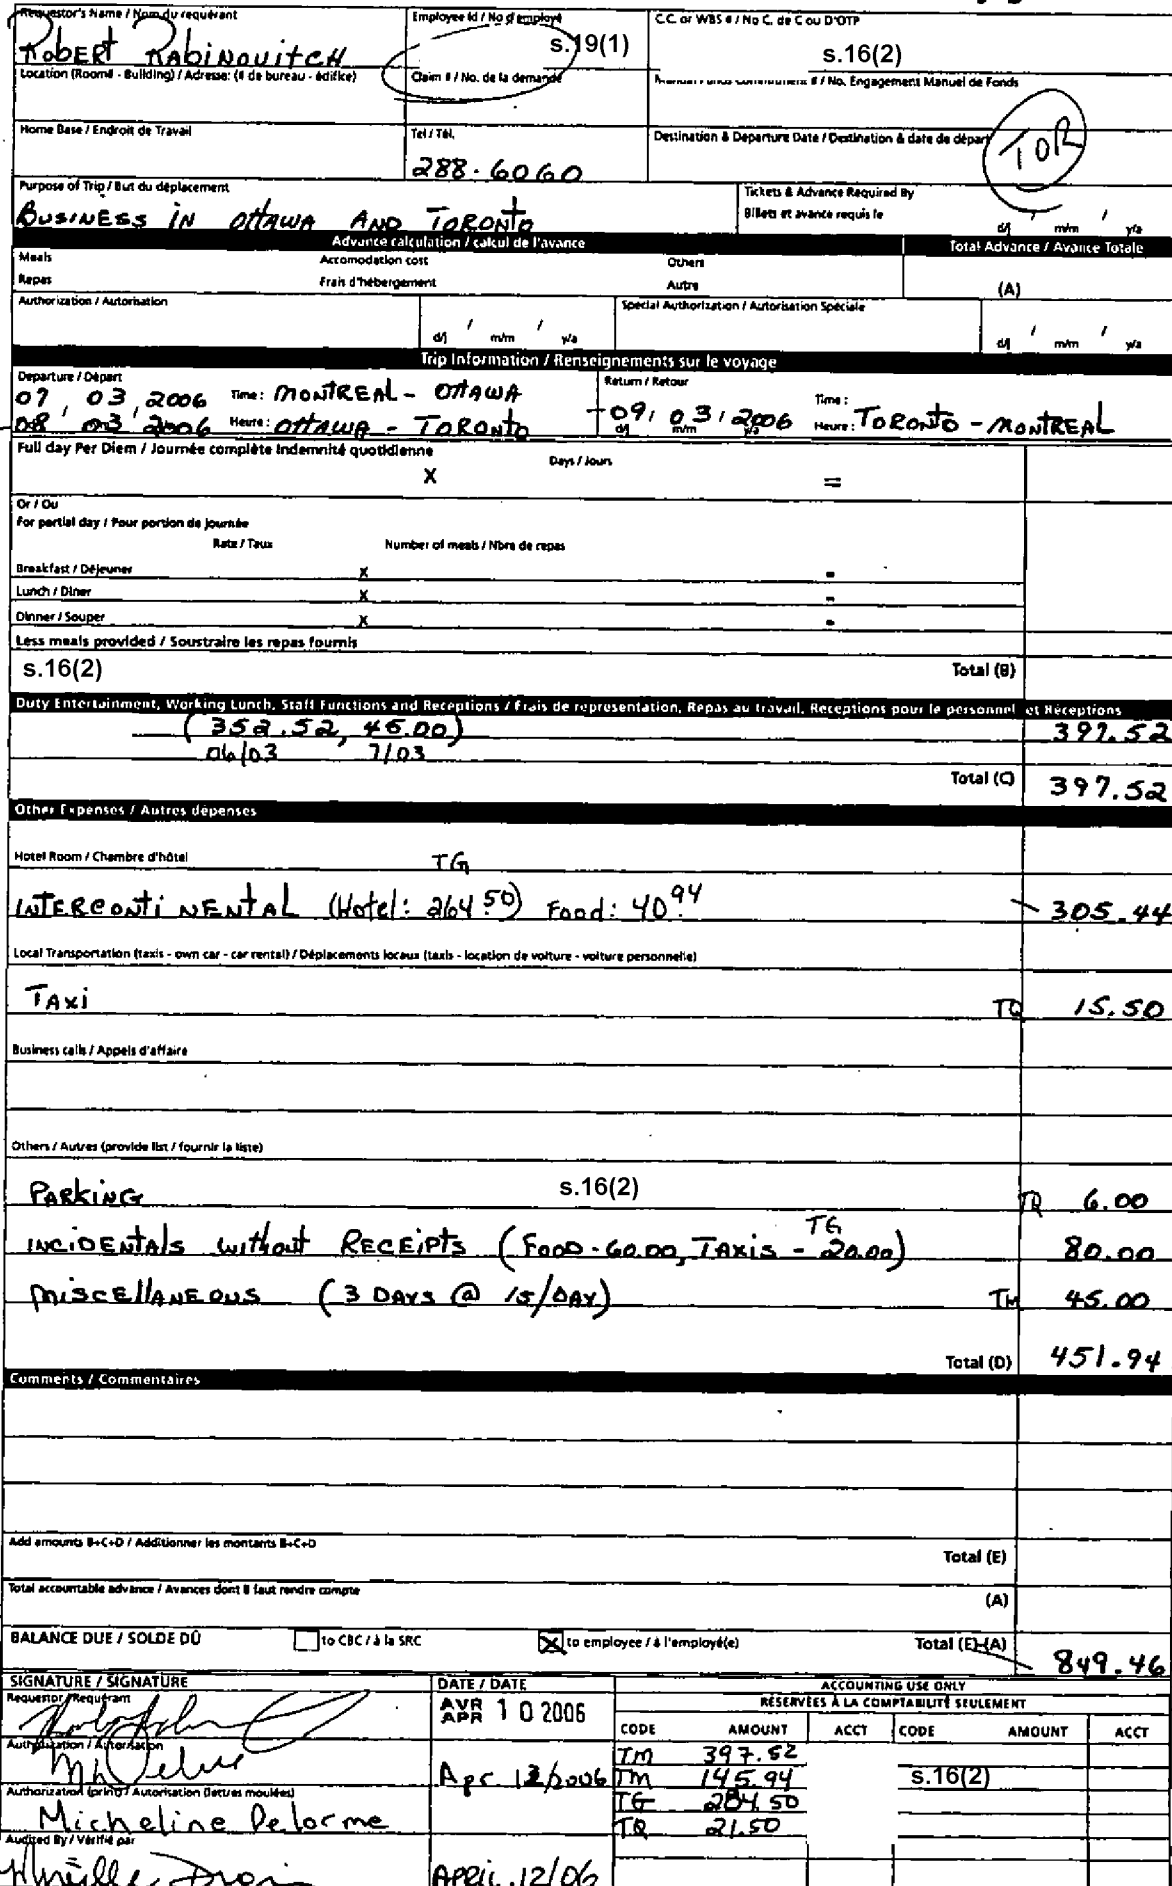 Requestor's Name / Nom du requérant
Robert Rabinovitch
Employee Id / No d'employé
s.19(1)
C.C. or WBS # / No C. de C ou D'OTP
s.16(2)
Location (Room# - Building) / Adresse: (# de bureau - édifice)
Claim # / No. de la demande
/ No. Engagement Manuel de Fonds
Home Base / Endroit de Travail
Tel / Tél.
288-6060
Destination & Departure Date / Destination & date de départ
TOR
Purpose of Trip / But du déplacement
Business in Ottawa and Toronto
Tickets & Advance Required By
Billets et avance requis le
d/j / m/m / y/a
Advance calculation / calcul de l'avance
Total Advance / Avance Totale
Meals
Accomodation cost
Others
Repas
Frais d'hébergement
Autre
(A)
Authorization / Autorisation
d/j / m/m / y/a
Special Authorization / Autorisation Spéciale
d/j / m/m / y/a
Trip Information / Renseignements sur le voyage
Departure / Départ
07, 03, 2006 Time: Montreal - Ottawa
08, 03, 2006 Heure: Ottawa - Toronto
Return / Retour
09/03/2006 Time: Heure: Toronto - Montreal
d/j m/m y/a
Full day Per Diem / Journée complète Indemnité quotidienne
X Days / Jours =
Or / Ou
For partial day / Pour portion de journée
Rate / Taux Number of meals / Nbre de repas
Breakfast / Déjeuner x =
Lunch / Diner x =
Dinner / Souper x =
Less meals provided / Soustraire les repas fournis
s.16(2)
Total (B)
Duty Entertainment, Working Lunch, Staff Functions and Receptions / Frais de représentation, Repas au travail, Receptions pour le personnel et Réceptions
(352.52, 45.00) 397.52
06/03 7/03
Total (C) 397.52
Other Expenses / Autres dépenses
Hotel Room / Chambre d'hôtel
TG
Intercontinental (Hotel: 264.50) Food: 40.94 305.44
Local Transportation (taxis - own car - car rental) / Déplacements locaux (taxis - location de voiture - voiture personnelle)
Taxi TQ 15.50
Business calls / Appels d'affaire
Others / Autres (provide list / fournir la liste)
Parking s.16(2) TQ 6.00
TG
Incidentals without Receipts (Food - 60.00, Taxis - 20.00) 80.00
Miscellaneous (3 Days @ 15/Day) TM 45.00
Total (D) 451.94
Comments / Commentaires
Add amounts B+C+D / Additionner les montants B+C+D
Total (E)
Total accountable advance / Avances dont il faut rendre compte
(A)
BALANCE DUE / SOLDE DÛ
to CBC / à la SRC
to employee / à l'employé(e)
Total (E)-(A) 849.46
SIGNATURE / SIGNATURE
DATE / DATE
ACCOUNTING USE ONLY
RÉSERVÉES À LA COMPTABILITÉ SEULEMENT
Requestor / Requérant
AVR
APR 10 2006
CODE AMOUNT ACCT CODE AMOUNT ACCT
Authorization / Autorisation
Apr 12/2006
TM 397.52
TM 145.94 s.16(2)
TG 284.50
TQ 21.50
Authorization (print) / Autorisation (lettres moulées)
Micheline Delorme
Audited By / Vérifié par
April 12/06